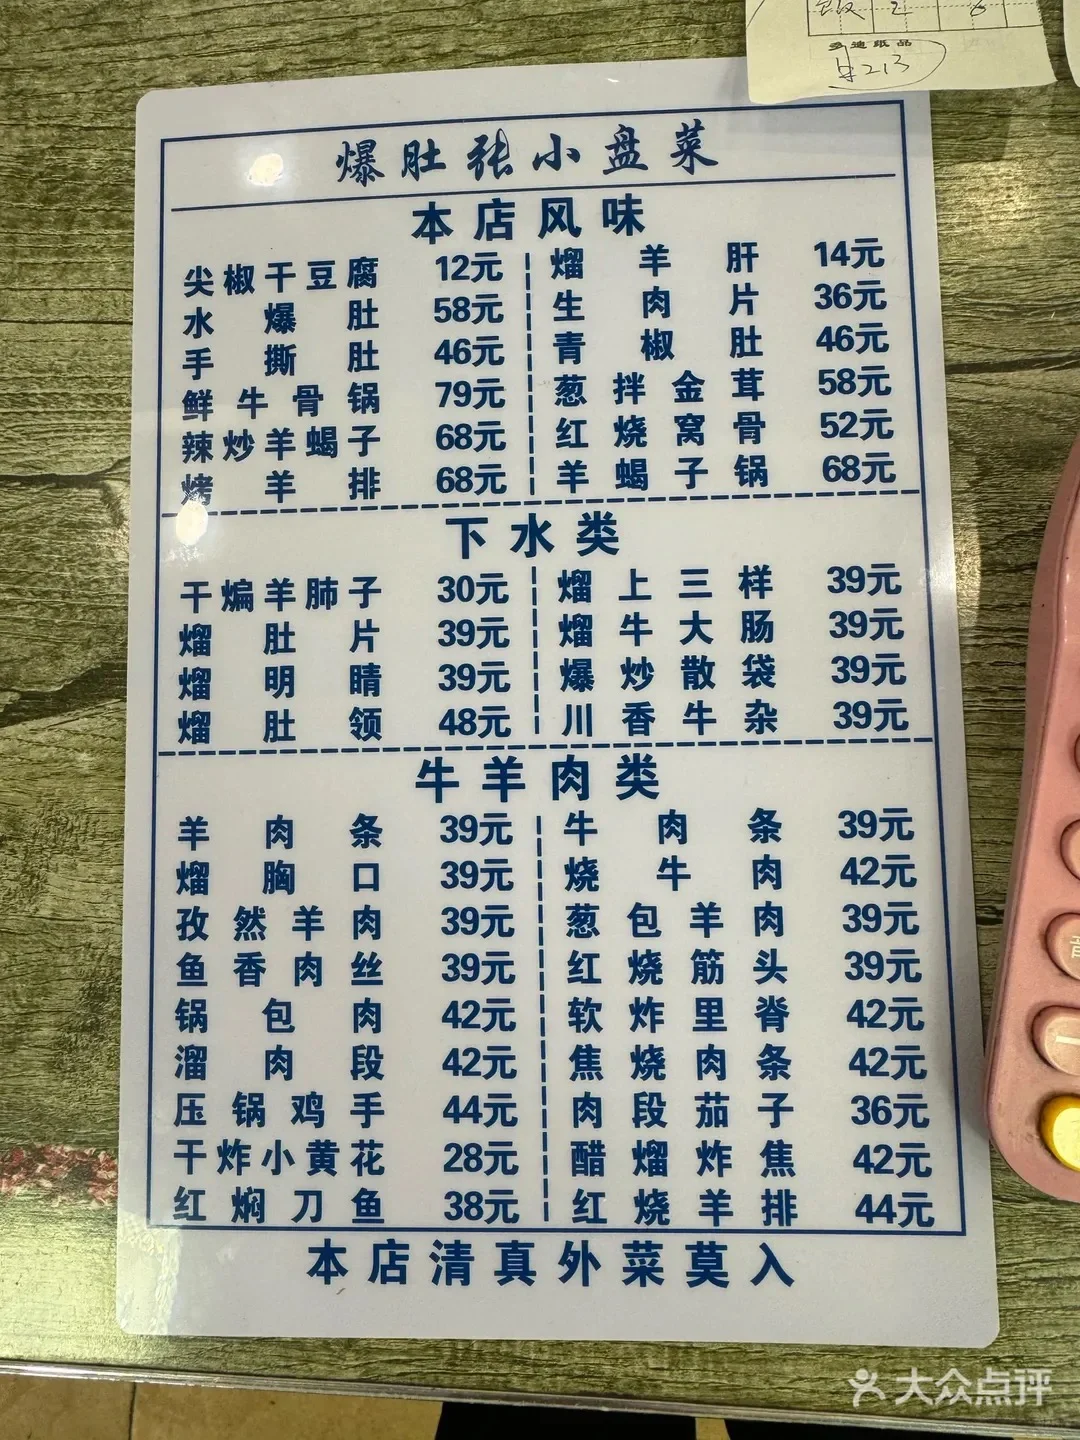 多迪纸品
¥213
爆肚张小盘菜
本店风味
尖椒干豆腐 12元 熘羊肝 14元
水爆肚 58元 生肉片 36元
手撕肚 46元 青椒肚 46元
鲜牛骨锅 79元 葱拌金茸 58元
辣炒羊蝎子 68元 红烧窝骨 52元
烤羊排 68元 羊蝎子锅 68元
下水类
干煸羊肺子 30元 熘上三样 39元
熘肚片 39元 熘牛大肠 39元
熘明睛 39元 爆炒散袋 39元
熘肚领 48元 川香牛杂 39元
牛羊肉类
羊肉条 39元 牛肉条 39元
熘胸口 39元 烧牛肉 42元
孜然羊肉 39元 葱包羊肉 39元
鱼香肉丝 39元 红烧筋头 39元
锅包肉 42元 软炸里脊 42元
溜肉段 42元 焦烧肉条 42元
压锅鸡手 44元 肉段茄子 36元
干炸小黄花 28元 醋熘炸焦 42元
红焖刀鱼 38元 红烧羊排 44元
本店清真外菜莫入
大众点评